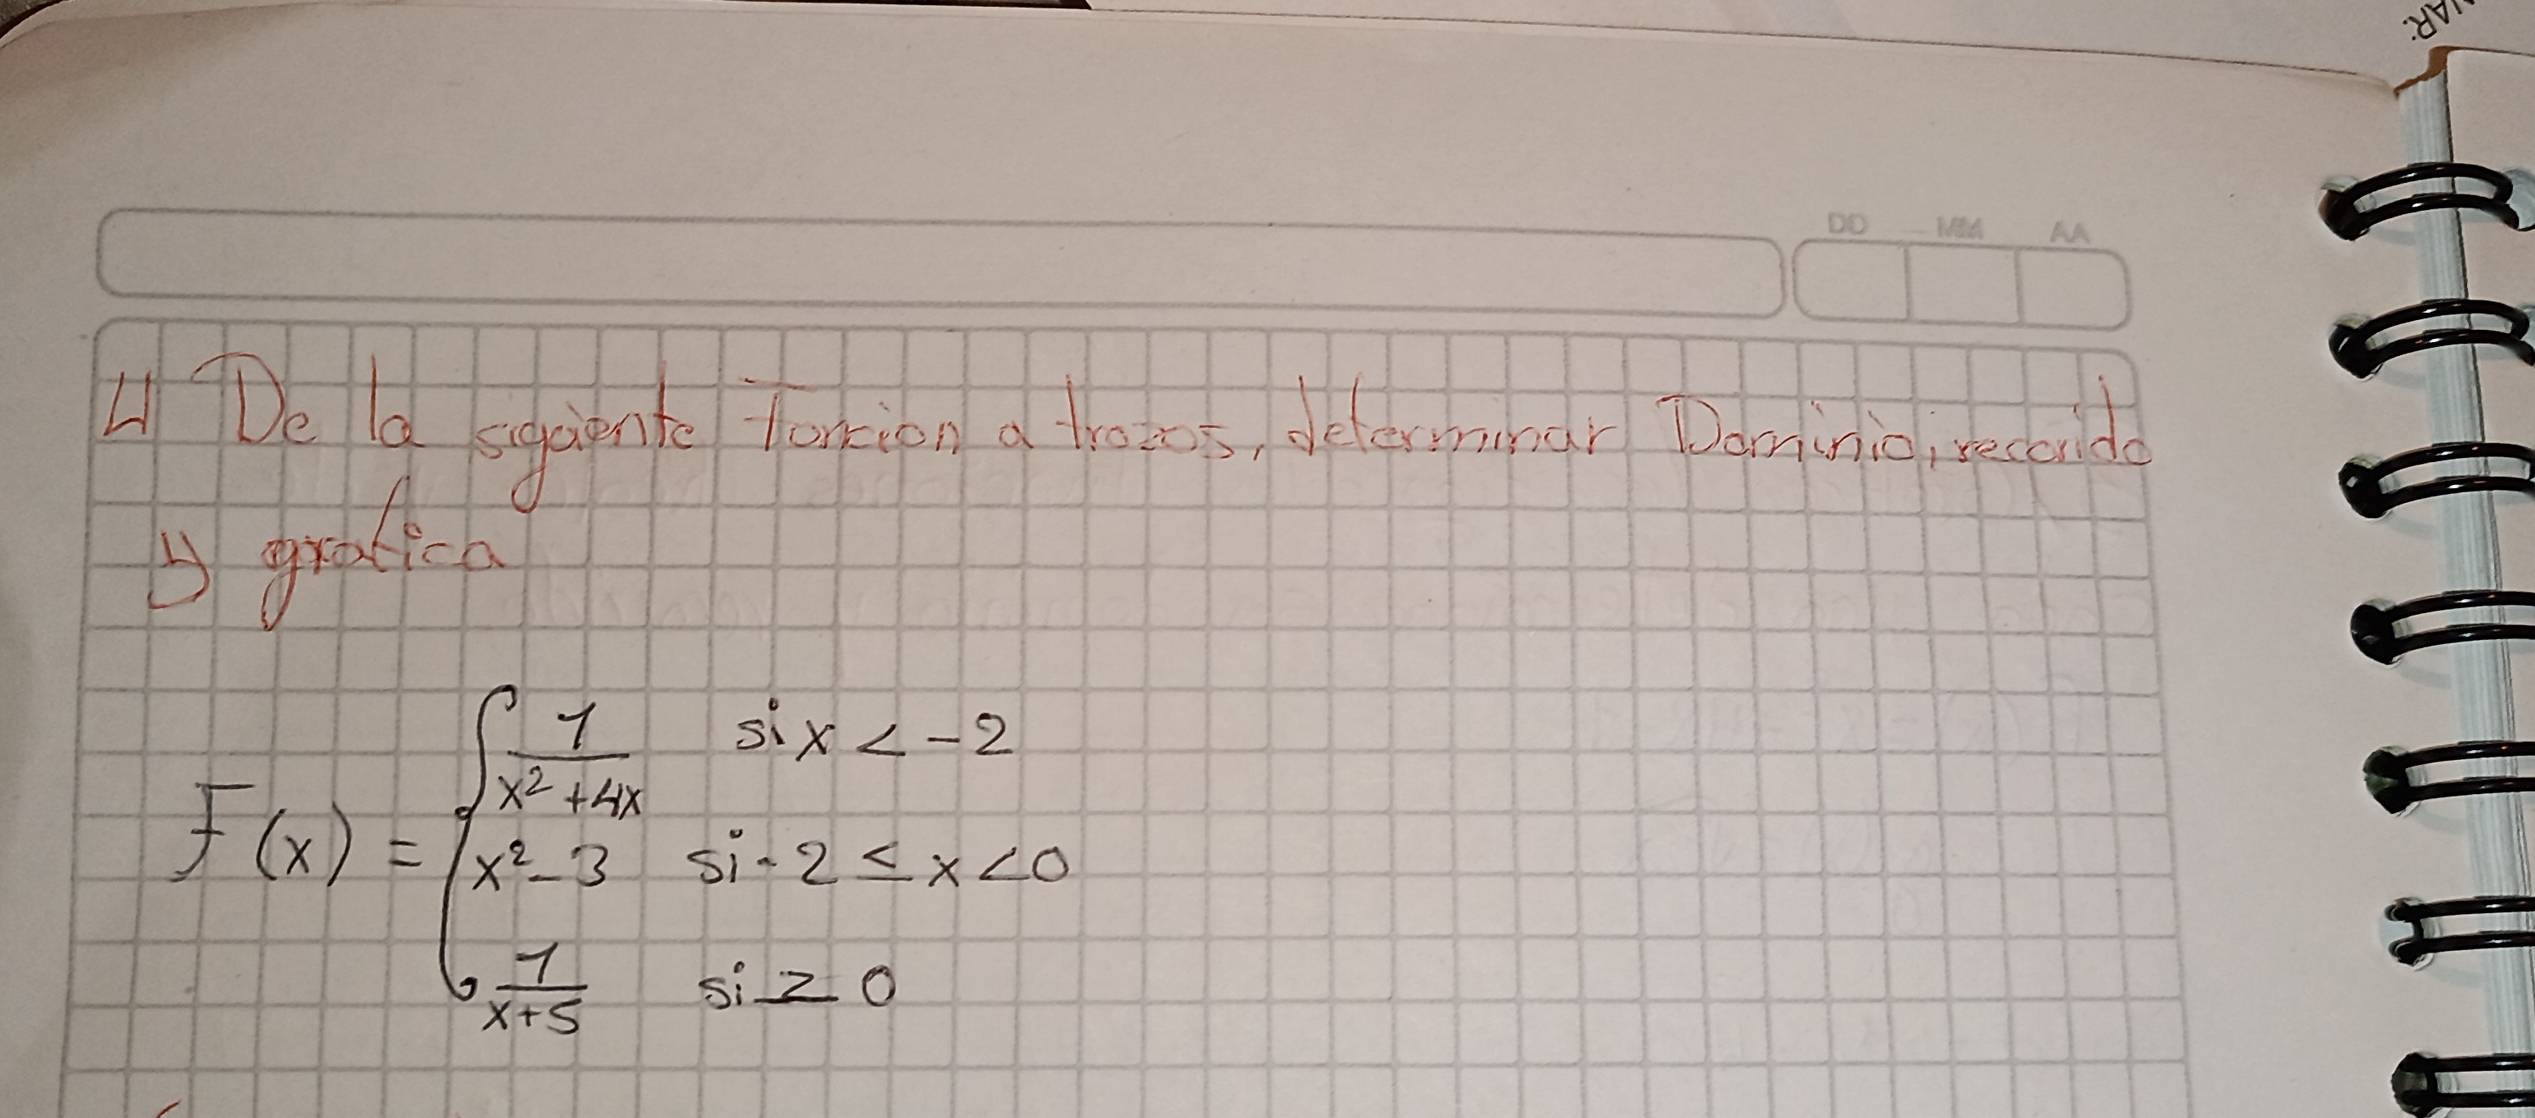 NAR:
DD MM AA
4 De la siguiente Foncion a trozos, determinar Dominio, recorrido
y grafica
F(x) = { 1/(x²+4x) si x < -2
x² - 3 si -2 ≤ x < 0
1/(x+5) si ≥ 0